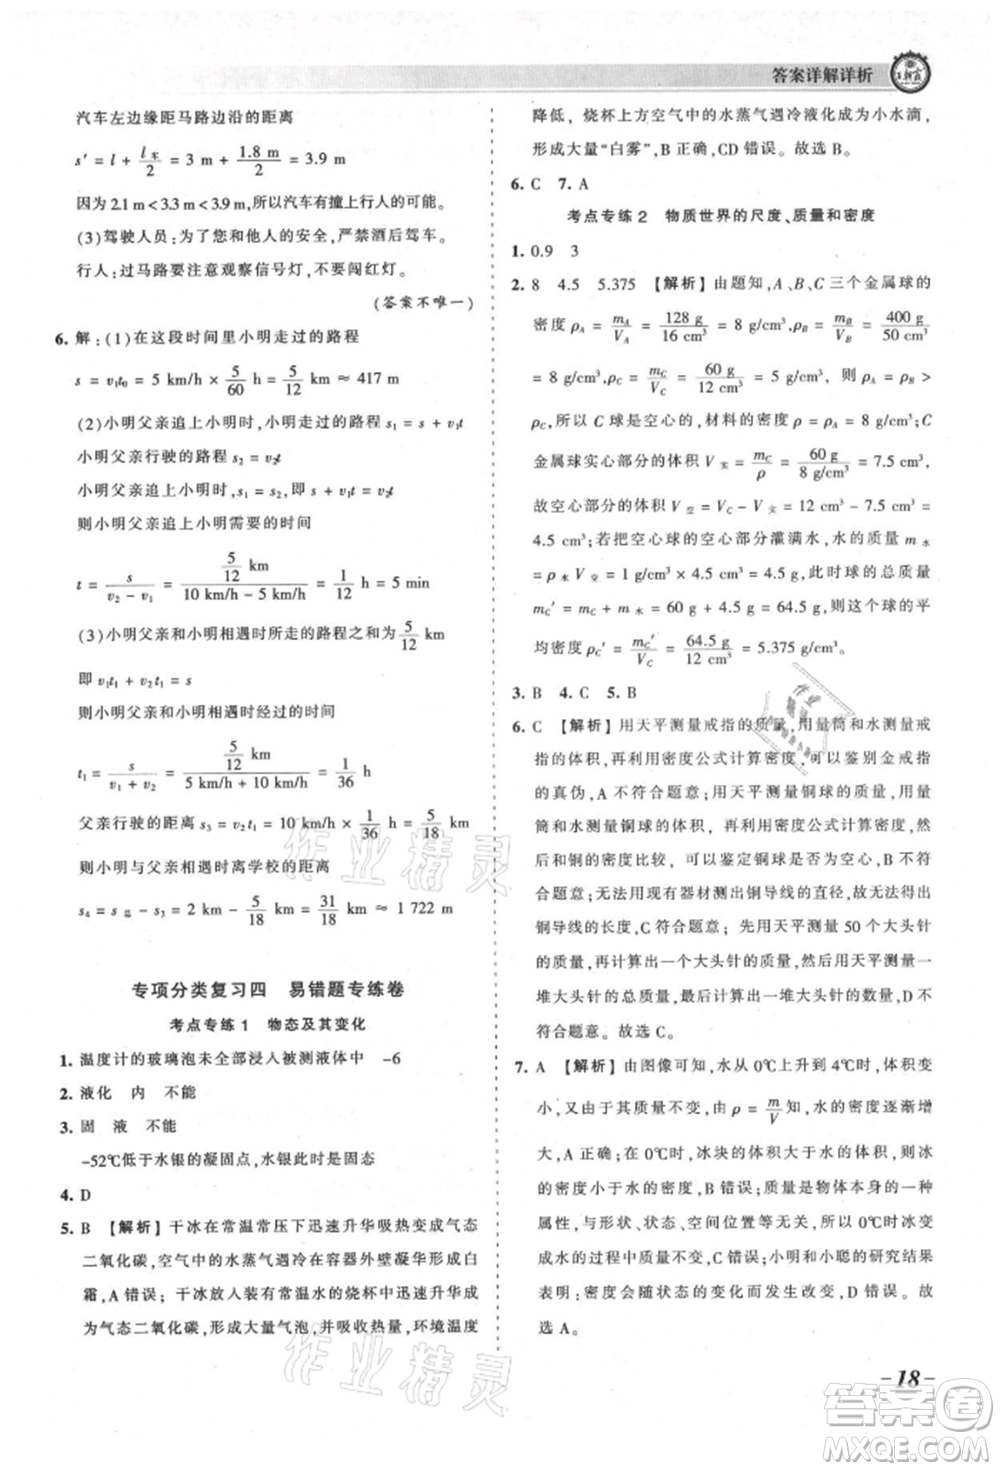 答案详解详析
王朝霞
汽车左边缘距马路边沿的距离
s′ = l + l车/2 = 3 m + 1.8 m/2 = 3.9 m
因为 2.1 m < 3.3 m < 3.9 m,所以汽车有撞上行人的可能。
(3)驾驶人员:为了您和他人的安全,严禁酒后驾车。
行人:过马路要注意观察信号灯,不要闯红灯。
(答案不唯一)
6. 解:(1)在这段时间里小明走过的路程
s = v₁t₀ = 5 km/h × 5/60 h = 5/12 km ≈ 417 m
(2)小明父亲追上小明时,小明走过的路程 s₁ = s + v₁t
小明父亲行驶的路程 s₂ = v₂t
小明父亲追上小明时,s₁ = s₂,即 s + v₁t = v₂t
则小明父亲追上小明需要的时间
t = s/(v₂ − v₁) = (5/12 km)/(10 km/h − 5 km/h) = 1/12 h = 5 min
(3)小明父亲和小明相遇时所走的路程之和为 5/12 km
即 v₁t₁ + v₂t₁ = s
则小明父亲和小明相遇时经过的时间
t₁ = s/(v₁ + v₂) = (5/12 km)/(5 km/h + 10 km/h) = 1/36 h
父亲行驶的距离 s₃ = v₂t₁ = 10 km/h × 1/36 h = 5/18 km
则小明与父亲相遇时离学校的距离
s₄ = s总 − 5/18 km = 2 km − 5/18 km = 31/18 km ≈ 1 722 m
专项分类复习四 易错题专练卷
考点专练 1 物态及其变化
1. 温度计的玻璃泡未全部浸入被测液体中 −6
2. 液化 内 不能
3. 固 液 不能
−52℃低于水银的凝固点,水银呈固态
4. D
5. B 【解析】干冰在常温常压下迅速升华吸热变成气态
二氧化碳,空气中的水蒸气遇冷在容器外壁凝华形成白
霜,A 错误;干冰放入装有常温水的烧杯中迅速升华
成为气态二氧化碳,形成大量气泡,并吸收热量,环境温度
降低,烧杯上方空气中的水蒸气遇冷液化成为小水滴,
形成大量“白雾”,B 正确,CD 错误。故选 B。
6. C 7. A
考点专练 2 物质世界的尺度、质量和密度
1. 0.9 3
2. 8 4.5 5.375 【解析】由题知,A、B、C 三个金属球的
密度 ρA = mA/VA = 128 g/16 cm³ = 8 g/cm³,ρB = mB/VB = 400 g/50 cm³
= 8 g/cm³,ρC = mC/VC = 60 g/12 cm³ = 5 g/cm³, 则 ρA = ρB >
ρC,所以 C 球是空心的,材料的密度 ρ = ρA = 8 g/cm³,C
金属球实心部分的体积 V实 = mC/ρ = 60 g/8 g/cm³ = 7.5 cm³,
故空心部分的体积 V空 = VC − V实 = 12 cm³ − 7.5 cm³ =
4.5 cm³;若把空心球的空心部分灌满水,水的质量 m水
= ρ水V空 = 1 g/cm³ × 4.5 cm³ = 4.5 g,此时球的总质量
mC′ = mC + m水 = 60 g + 4.5 g = 64.5 g,则这个球的平
均密度 ρC′ = mC′/VC = 64.5 g/12 cm³ = 5.375 g/cm³。
3. B 4. C 5. B
6. C 【解析】用天平测量戒指的质量,用量筒和水测量戒
指的体积,再利用密度公式计算密度,可以鉴别金戒指
的真伪,A 不符合题意;用天平测量铜球的质量,用量
筒和水测量铜球的体积,再利用密度公式计算密度,最
后和铜的密度比较,可以鉴定铜球是否为空心,B 不符
合题意;无法用现有器材测出铜导线的直径,故无法测
铜导线的长度,C 符合题意;先用天平测量一个大头针
的质量或数量较少的大头针的质量,然后用天平测量一
堆大头针的质量,最后计算出一堆大头针的数量,D 不
符合题意。故选 C。
7. A 【解析】由图像可知,水从 0℃上升到 4℃时,体积变
小,又因为其质量不变,由 ρ = m/V 知,水的密度逐渐增
大,A 正确;由图像可知,0℃时,冰块的体积大于水的体积,所
以冰的密度小于水的密度,B 错误;质量是物体本身的一种
属性,与形状、状态、空间位置无关,因此,0℃时,冰变
成水的过程中质量不变,C 错误;小明和小聪的研究结果
表明,密度会随状态的变化而发生改变,D 错误。故
选 A。
– 18 –
作业精灵
作业精灵
答案圈
MXQE.COM